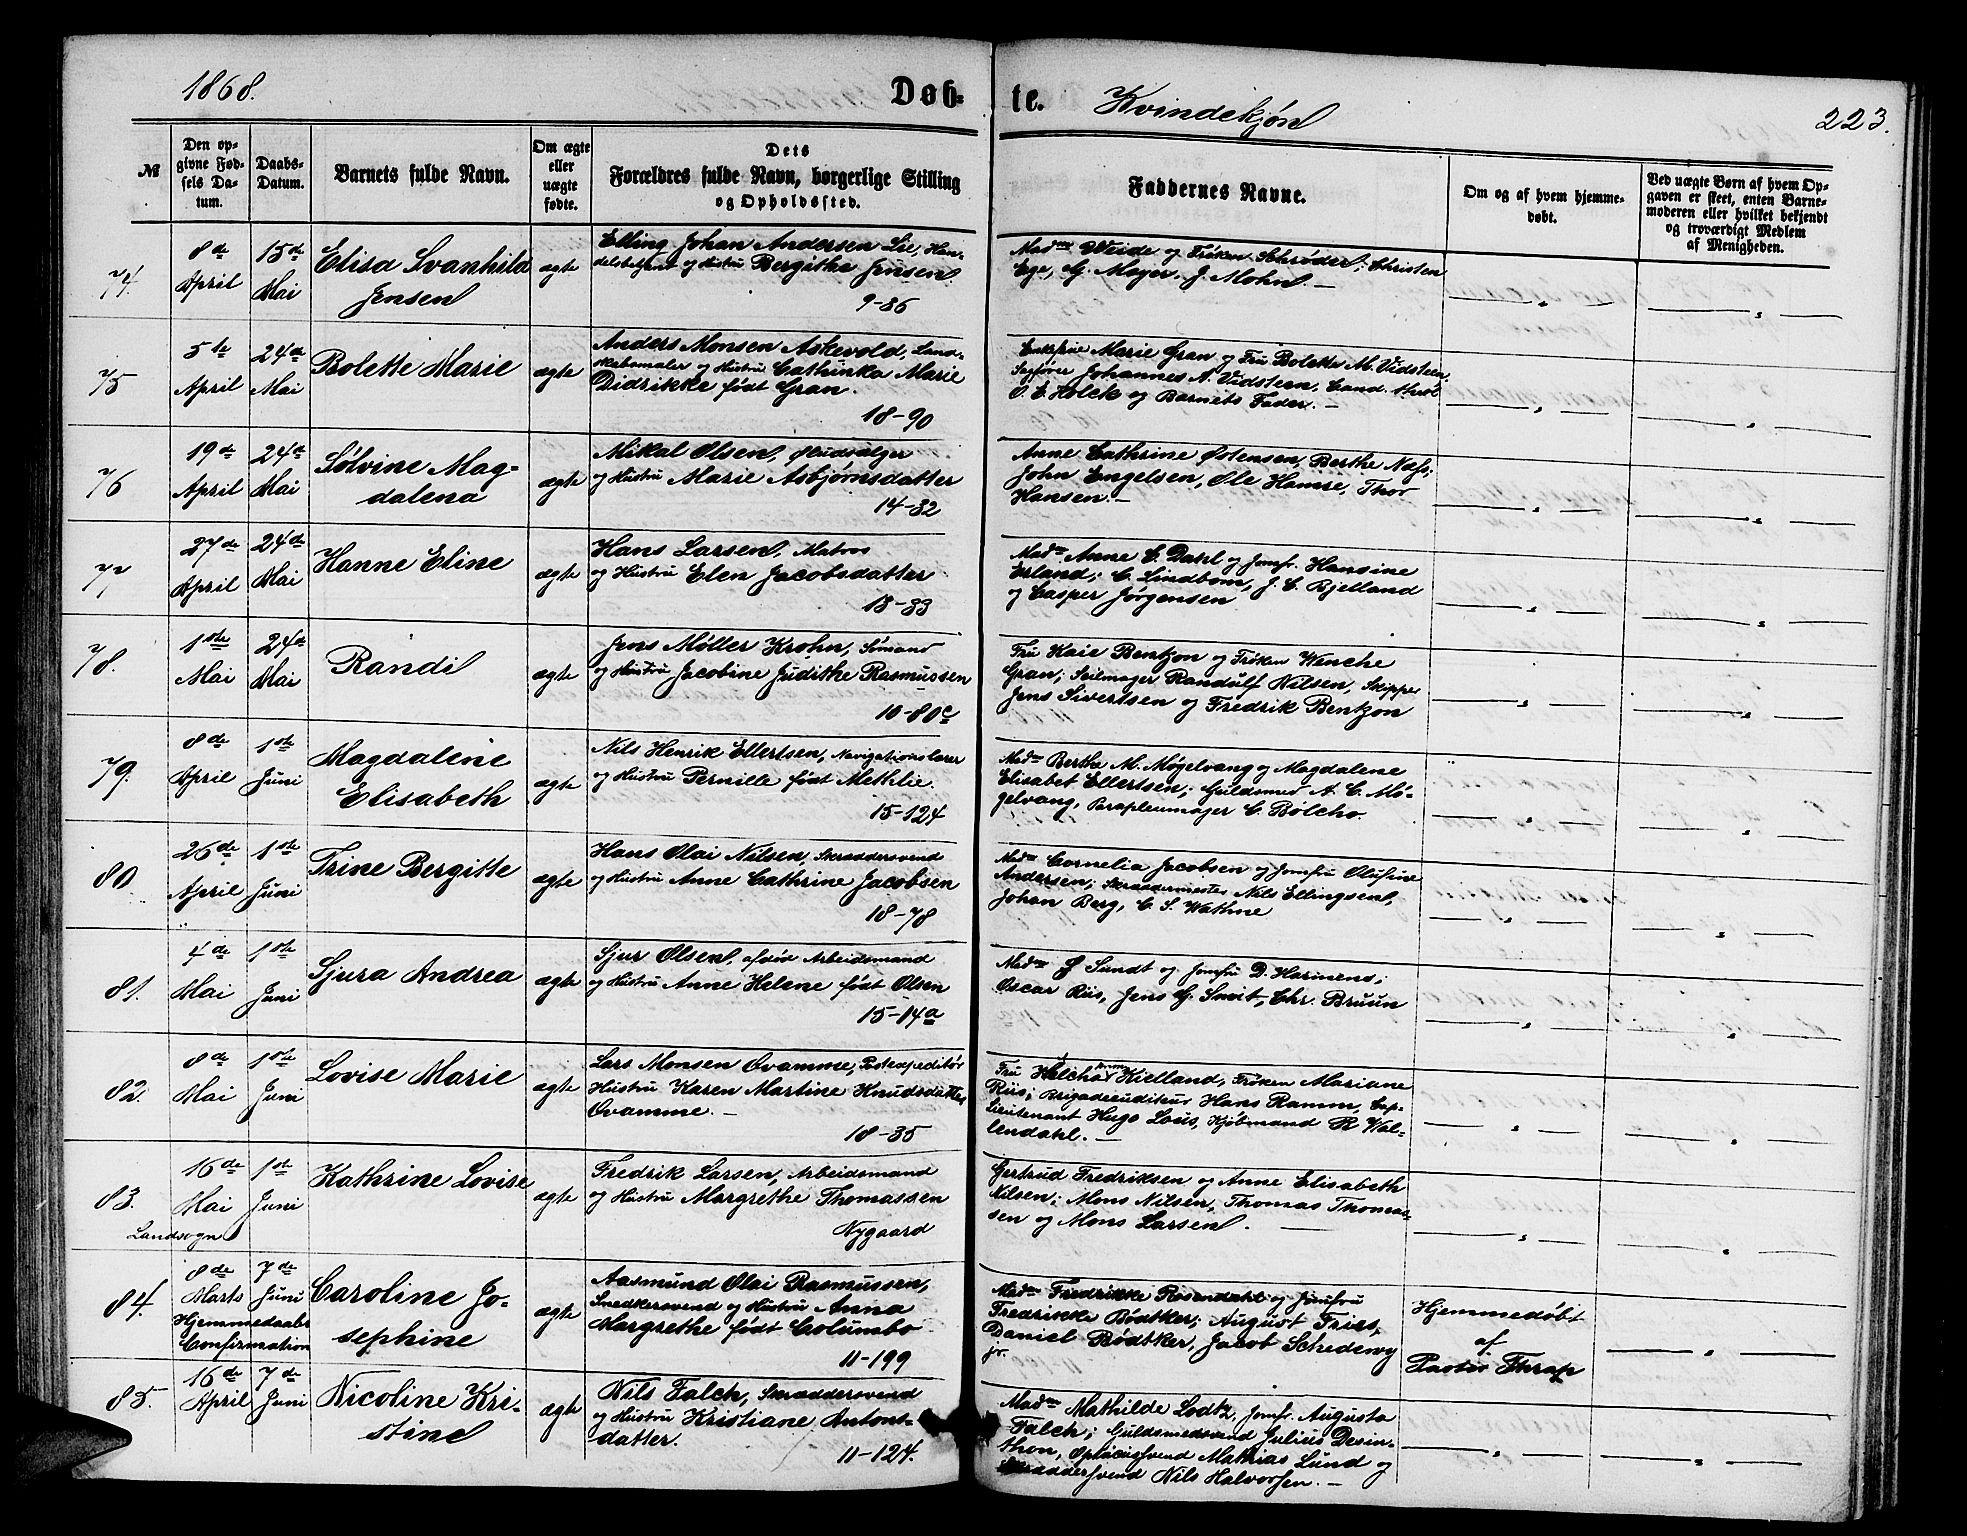 1868.
Døb-
te.
Kvindekjøn
223.
№
Den op-
givne Fød-
sels Da-
tum.
Daabs-
Datum.
Barnets fulde Navn.
Om ægte
eller
uægte
fødte.
Dets
Forældres fulde Navn, borgerlige Stilling
og Opholdssted.
Faddernes Navne.
Om og af hvem hjemme-
døbt.
Ved uægte Børn af hvem Op-
gaven er skeet, enten Barne-
moderen eller hvilket bekjendt
og troværdigt Medlem
af Menigheden.
74.
8de
April
15de
Mai
Elisa Svanhild
Jensen
ægte
Elling Johan Andersen Lie, Han-
delsbetjent og Hustru Bergithe Jensen.
9-36
Madme Weide og Frøken Schrøder; Christen
Ege, G. Mayer, J. Mohn. —
75
5te
April
24de
Mai
Bolette Marie
ægte
Anders Monsen Askevold, Land-
skabsmaler og Hustru Cathinka Marie
Didrikke født Gran.
18-90
Enkefrue Marie Gran og Fru Bolette M. Vidsteen,
Sagfører Johannes N. Vidsteen, Cand.
O. E. Holck og Barnets Fader. —
76
19de
April
24de
Mai
Sølvine Mag-
dalena
ægte
Mikal Olsen,
og Hustru Marie Asbjørnsdatter
14-32
Anne Cathrine Østensen, Berthe Næss;
John Engelsen, Ole Hamre, Thor
Hansen. —
77
27de
April
24de
Mai
Hanne Eline
ægte
Hans Larsen, Matros
og Hustru Elen Jacobsdatter
13-33
Madme Anne C. Dahl og Jomfr. Hansine
Erland; C. Lindbom, J. C. Bjelland
og Casper Jørgensen
78.
1ste
Mai
24de
Mai
Randi
ægte
Jens Møller Krohn, Sømand
og Hustru Jacobine Judithe Rasmussen
10-80c
Fru Kaie Bentzon og Frøken Wenche
Gran; Seilmager Randulf Nilsen, Skipper
Jens Sivertsen og Fredrik Bentzon
79.
8de
April
1ste
Juni
Magdalene
Elisabeth
ægte
Nils Henrik Ellertsen, Navigationslærer
og Hustru Pernille født Methlie.
15-124
Madme Berthe M. Møgelvang og Magdalene
Elisabet Ellertsen; Guldsmed A. C. Mø-
gelvang, Parapleumager C. Bølcho.
80.
26de
April
1ste
Juni
Trine Bergitte
ægte
Hans Olai Nilsen, Skræddersvend
og Hustru Anne Cathrine Jacobsen
18-78
Madme Cornelia Jacobsen og Jomfru Olufine
Andersen; Skræddermester Nils Ellingsen,
Johan Berg, C. S. Wathne
81.
4de
Mai
1ste
Juni
Sjura Andrea
ægte
Sjur Olsen, afdød Arbeidsmand
og Hustru Anne Helene født Olsen
15-14a
Madme Sundt og Jomfru D. Harmens;
Oscar Riis, Jens G. Smit, Chr. Bruun
82.
8de
Mai
1ste
Juni
Lovise Marie
ægte
Lars Monsen Øvamme, Postexpeditør
Hustru Karen Martine Knudsdatter
Øvamme. —
18-35
Fru Kielland, Frøken Mariane
Riis; Brigadeauditeur Hans Ramm, Cap-
Lieutenant Hugo Lous, Kjøbmand R Wal-
lendahl. —
83.
Landsogn
16de
Mai
1ste
Juni
Kathrine Lovise
ægte
Fredrik Larsen, Arbeidsmand
og Hustru Margrethe Thomassen
Nygaard
Gertrud Fredriksen og Anne Elisabeth
Nilsen; Mons Nilsen, Thomas Thomas-
sen og Mons Larsen. —
84.
8de
Marts
7de
Juni
Hjemmedaabs
Confirmation
Caroline Jo-
sephine
ægte
Aasmund Olai Rasmussen,
Snedkersvend og Hustru Anna
Margrethe født Columbo
11-199
Madme Fredrikke Rosendahl og Jomfru
Fredrikke Bødtker; August Friis,
Daniel Bødtker, Jacob Schedewy
jr.
Hjemmedøbt
af
Pastor Thrap
85.
16de
April
7de
Juni
Nicoline Kri-
stine
ægte
Nils Falch, Skræddersvend
og Hustru Kristiane Antons-
datter.
11-124.
Madme Mathilde Lodtz, Jomfr. Augusta
Falch; Guldsmedsvend Julius Desin-
thon, Mathias Lund og
Skræddersvend Nils Halvorsen. —